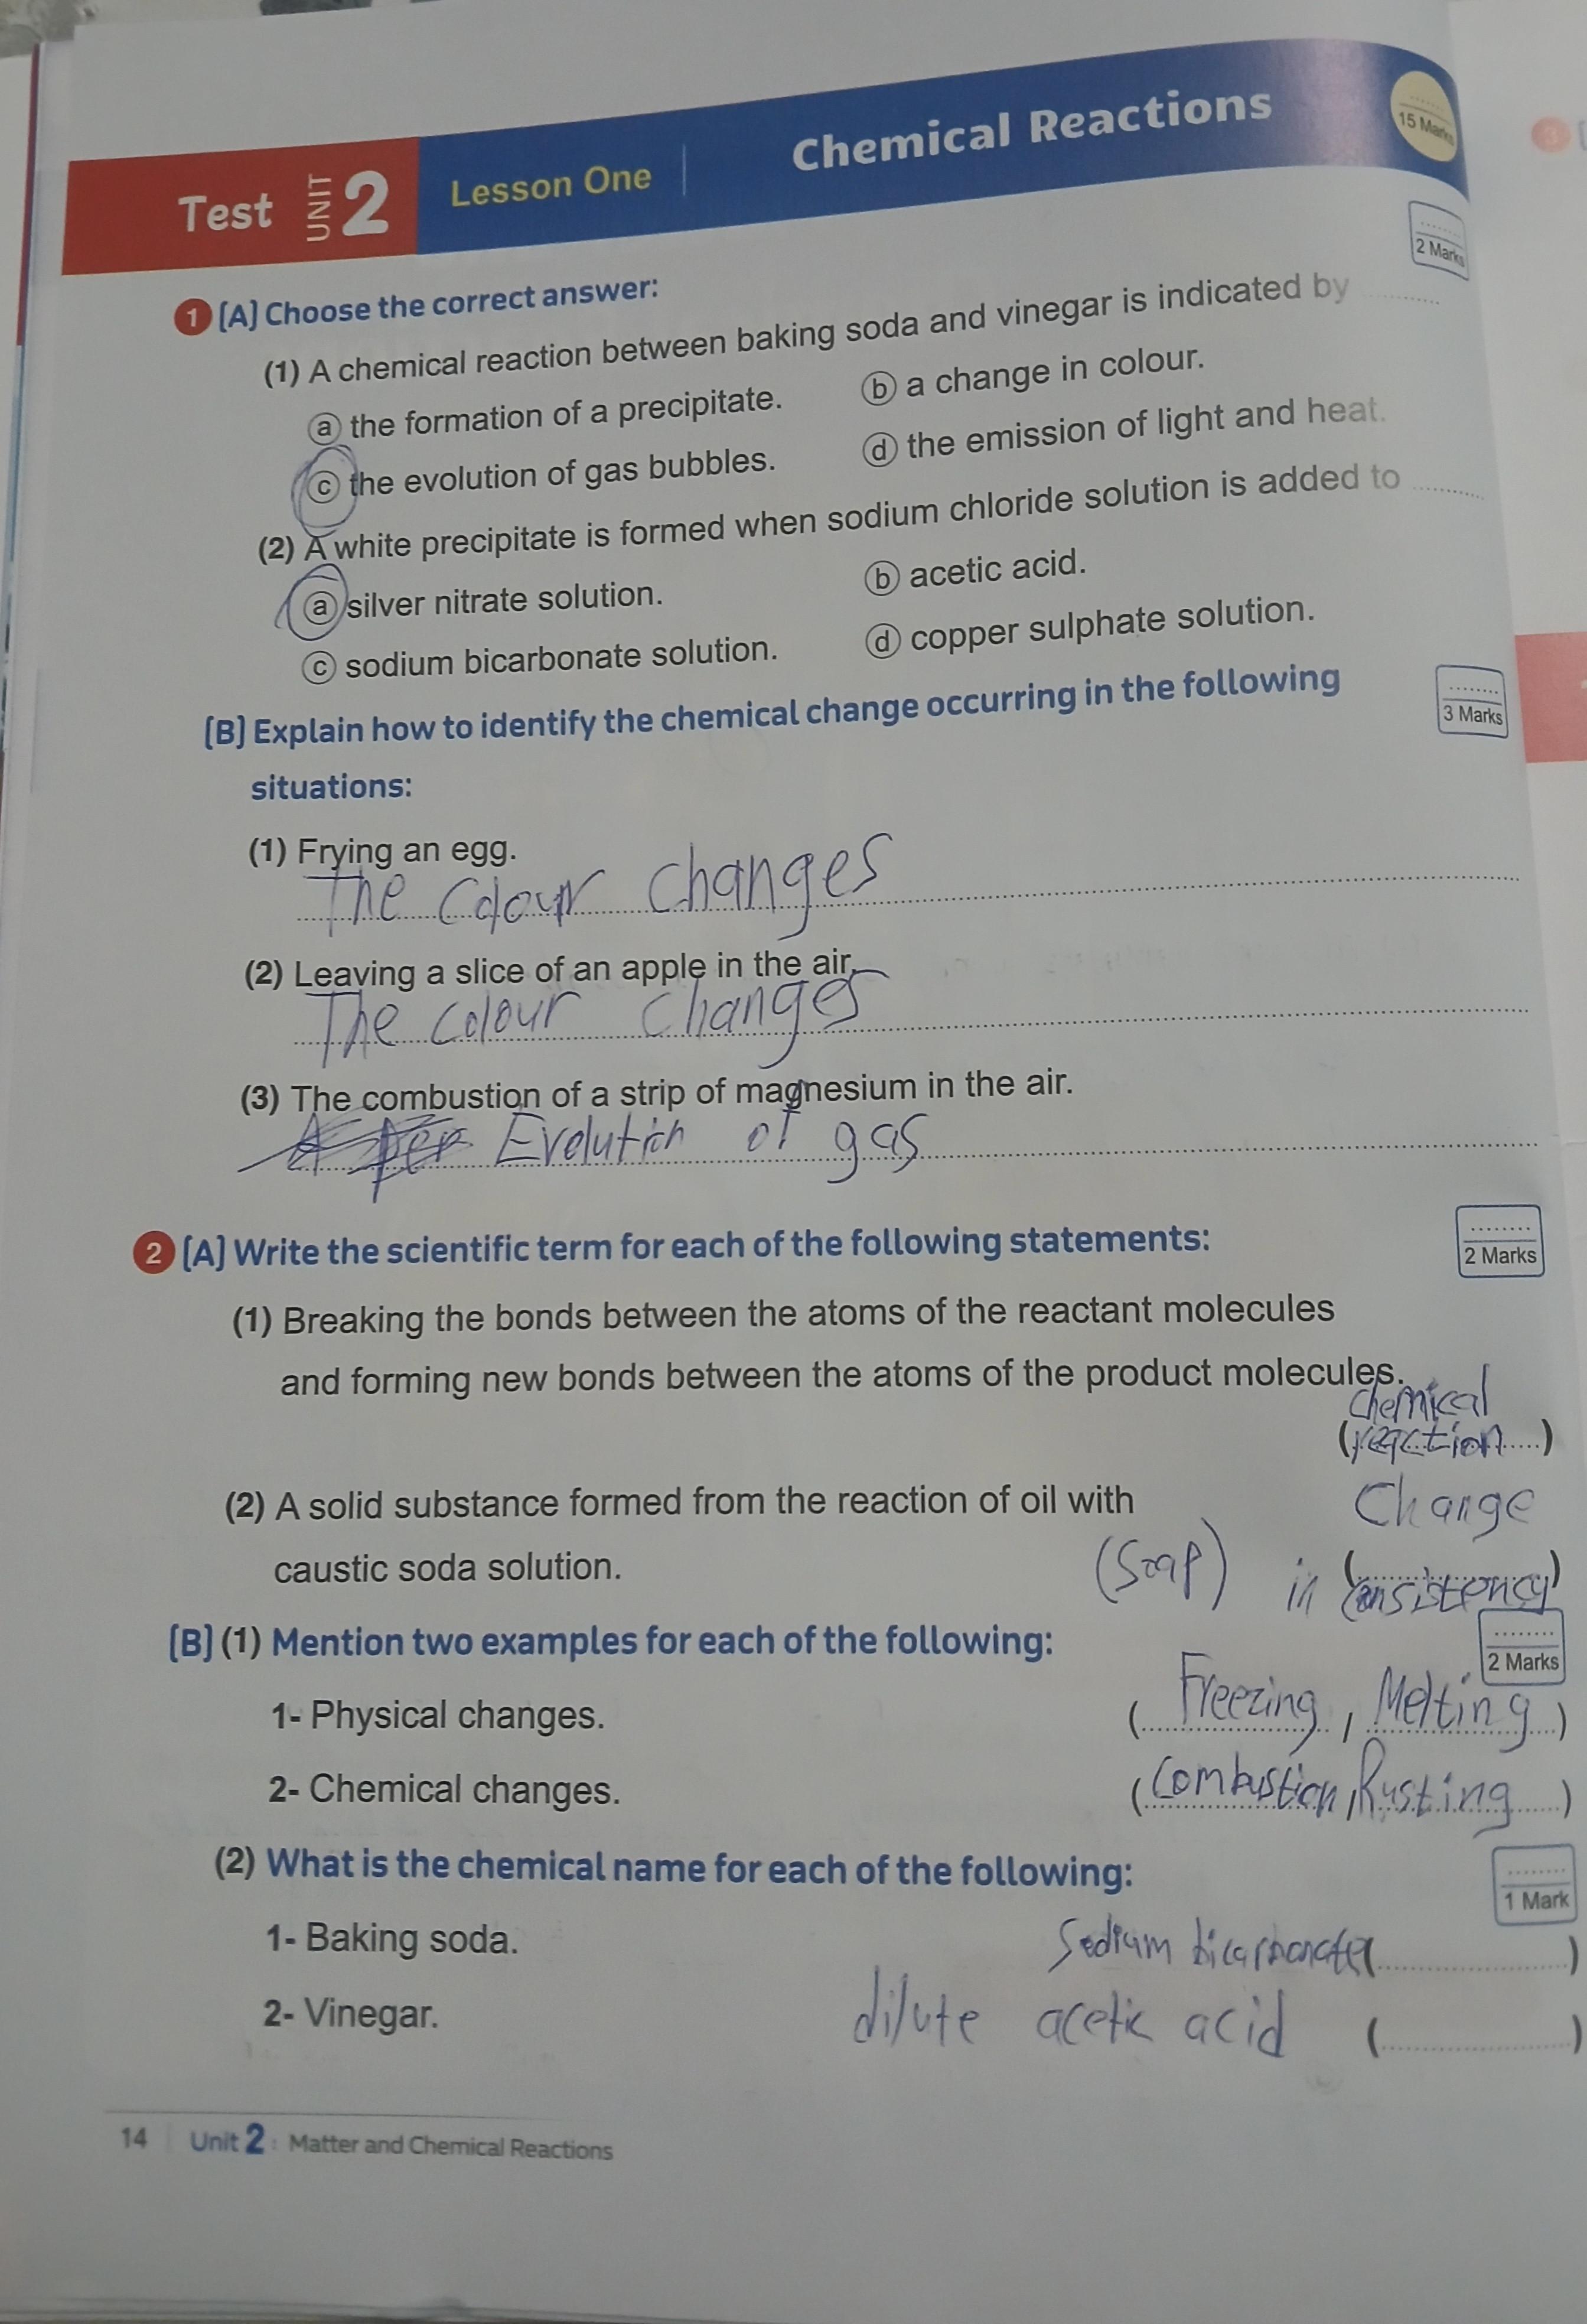 15 Marks
Test UNIT 2 Lesson One Chemical Reactions
2 Marks
1 [A] Choose the correct answer:
(1) A chemical reaction between baking soda and vinegar is indicated by ..........
a the formation of a precipitate. b a change in colour.
c the evolution of gas bubbles. d the emission of light and heat.
(2) A white precipitate is formed when sodium chloride solution is added to ..........
a silver nitrate solution. b acetic acid.
c sodium bicarbonate solution. d copper sulphate solution.
[B] Explain how to identify the chemical change occurring in the following
3 Marks
situations:
(1) Frying an egg.
The colour changes
(2) Leaving a slice of an apple in the air.
The colour changes
(3) The combustion of a strip of magnesium in the air.
Evolution of gas
2 [A] Write the scientific term for each of the following statements:
2 Marks
(1) Breaking the bonds between the atoms of the reactant molecules
and forming new bonds between the atoms of the product molecules.
chemical
(reaction)
(2) A solid substance formed from the reaction of oil with
Change
caustic soda solution. (Soap) in (consistency)
[B] (1) Mention two examples for each of the following:
2 Marks
1- Physical changes. (Freezing, Melting)
2- Chemical changes. (Combustion, Rusting)
(2) What is the chemical name for each of the following:
1 Mark
1- Baking soda. Sodium bicarbonate (..........)
2- Vinegar. dilute acetic acid (..........)
14 Unit 2 : Matter and Chemical Reactions